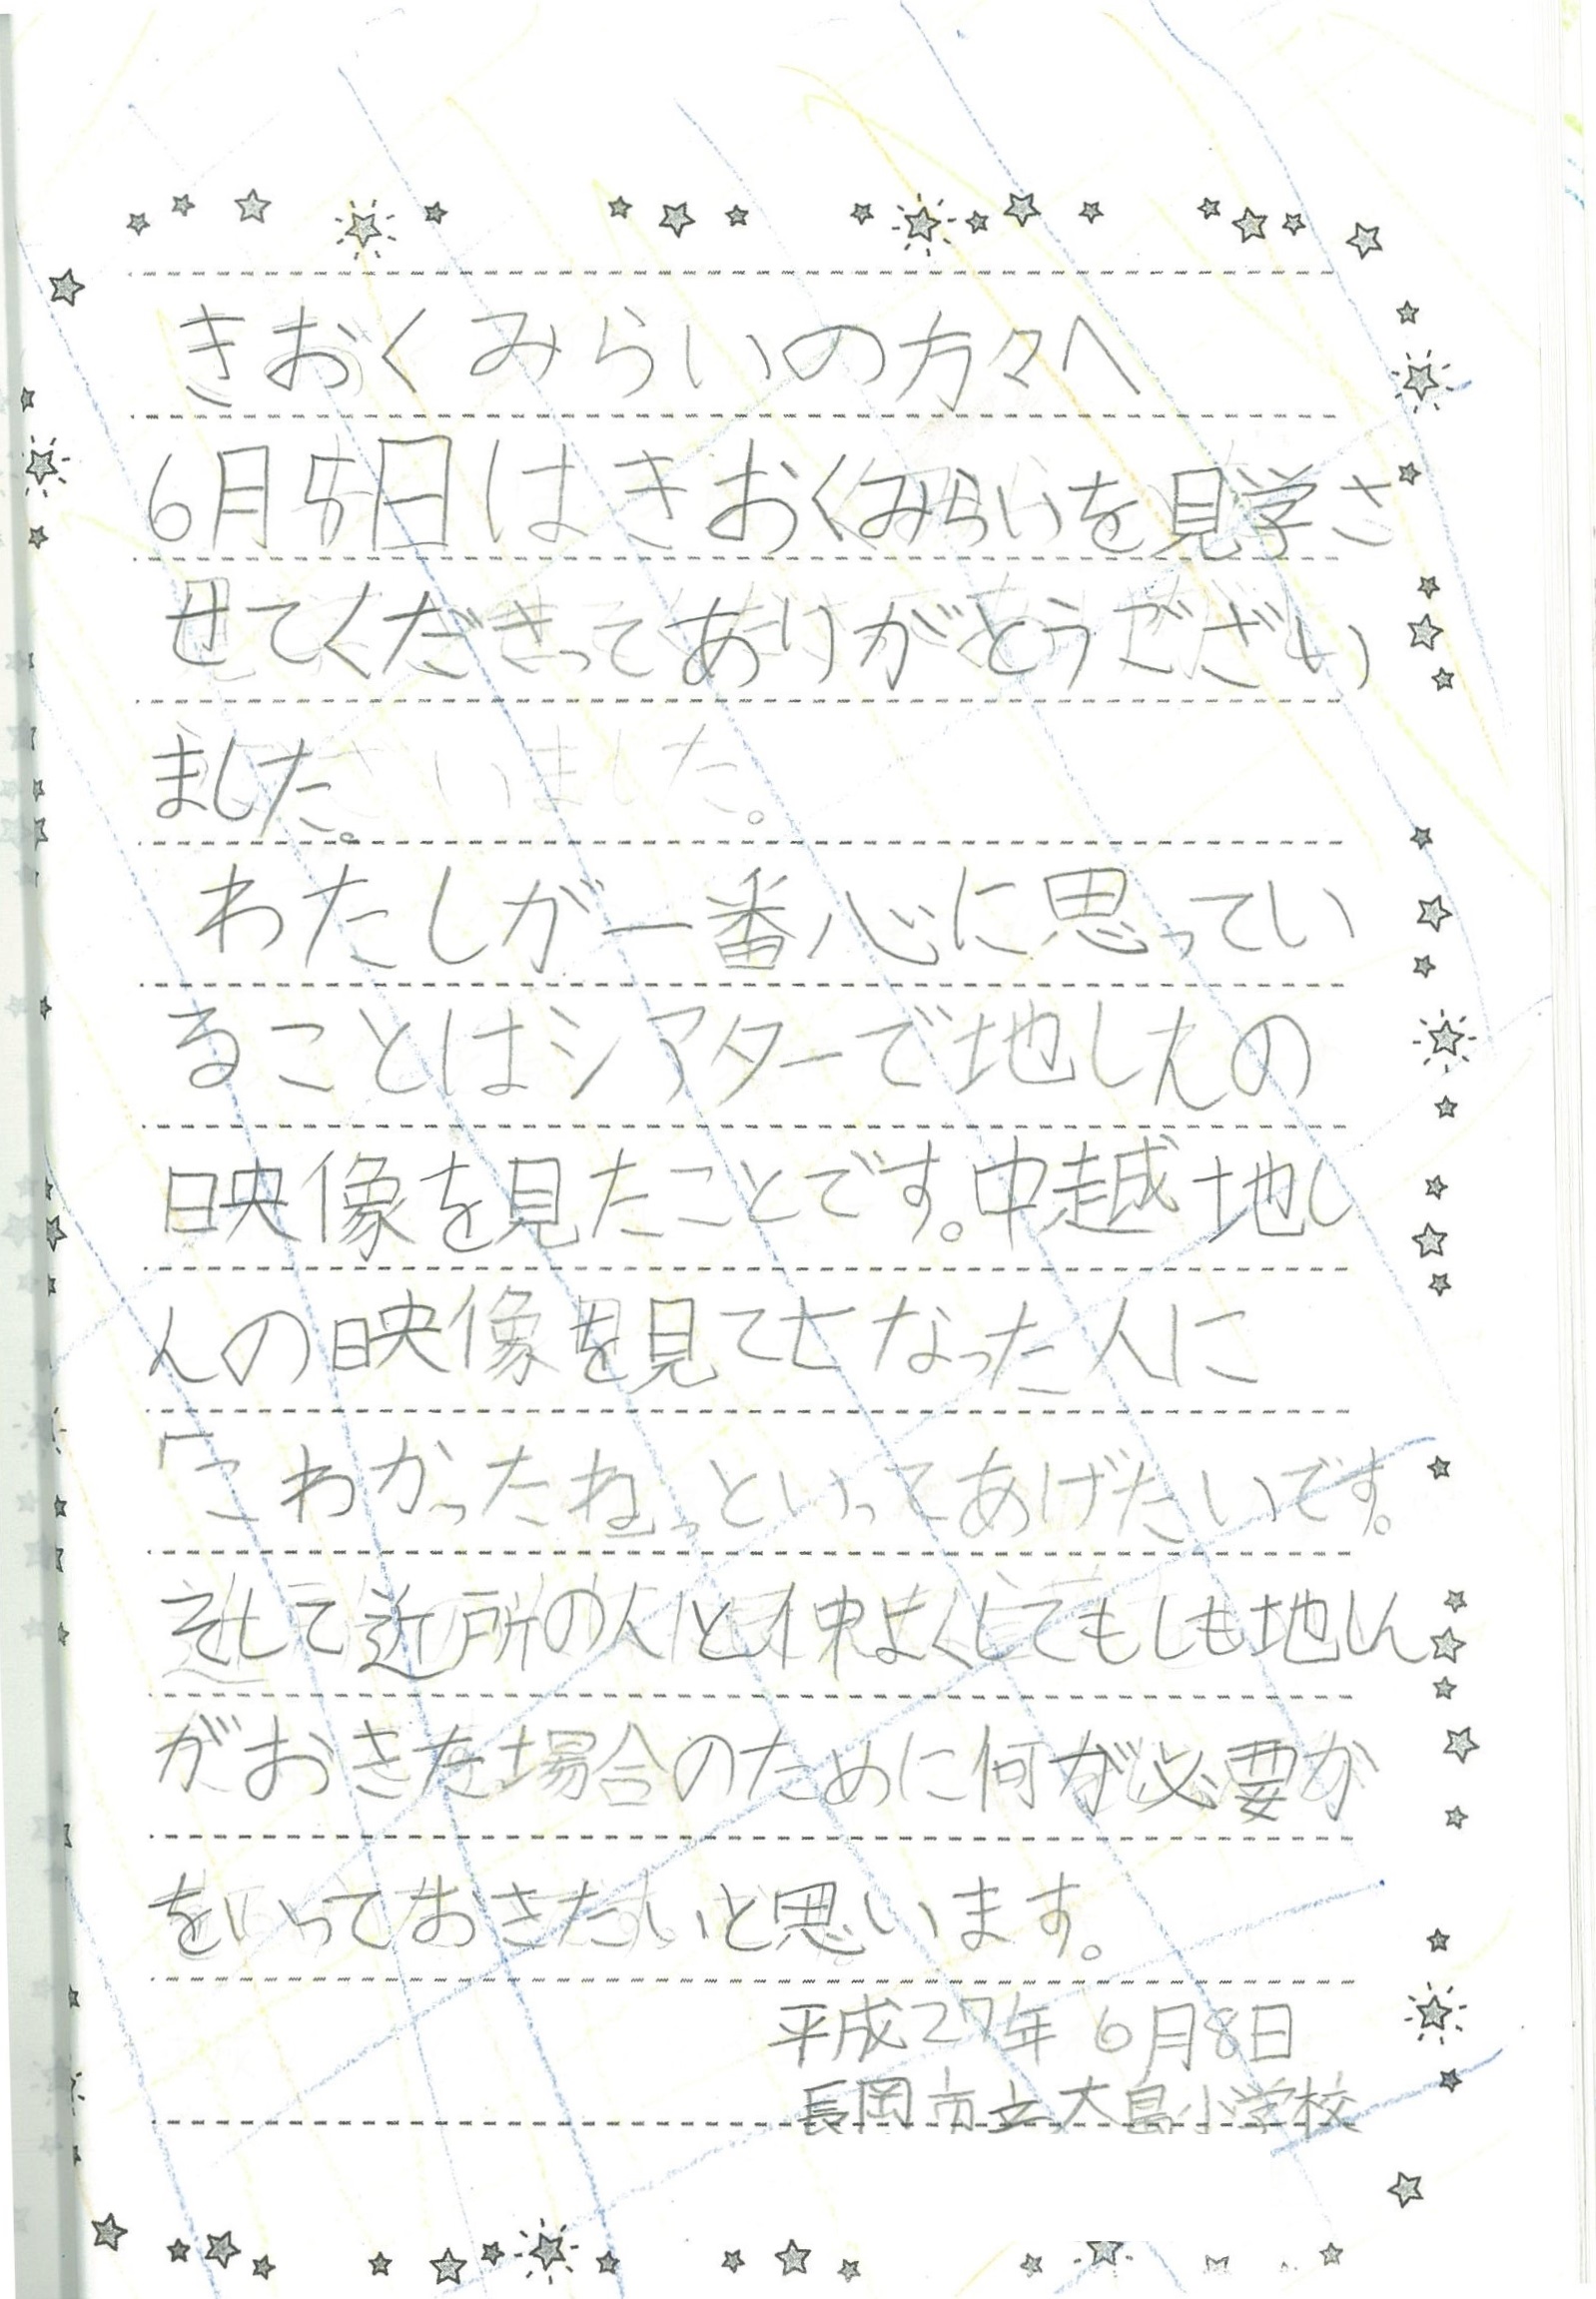 きおくみらいの方々へ
6月5日はきおくみらいを見学さ
せてくださってありがとうござい
ました。
わたしが一番心に思ってい
ることはシアターで地しんの
映像を見たことです。中越地し
んの映像を見て亡なった人に
「こわかったね」っといってあげたいです。
そして近所の人と仲よくしてもしも地しん
がおきた場合のために何が必要か
をいっておきたいと思います。
平成27年 6月8日
長岡市立大島小学校